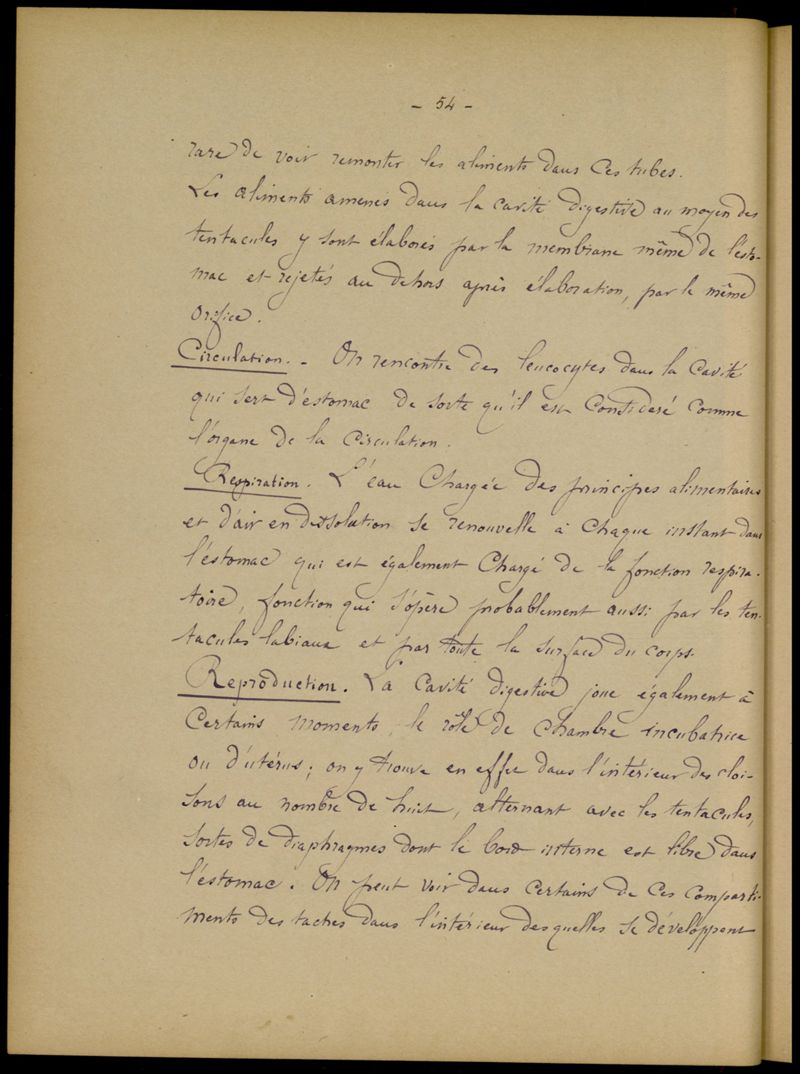 - 54 -
rare de voir remonter les aliments dans ces tubes.
Les aliments amenés dans la cavité digestive au moyen des
tentacules y sont élaborés par la membrane même de l'esto-
mac et rejetés au dehors après élaboration, par le même
orifice.
Circulation. - On rencontre des leucocytes dans la cavité
qui sert d'éstomac de sorte qu'il est considéré comme
l'organe de la circulation.
Respiration. L'eau chargée des principes alimentaires
et d'air en dissolution se renouvelle à chaque instant dans
l'éstomac qui est également chargé de la fonction respira-
toire, fonction qui s'opère probablement aussi par les ten-
tacules labiaux et par toute la surface du corps.
Reproduction. La cavité digestive joue également à
certains moments, le rôle de chambre incubatrice
ou d'utérus; on y trouve en effet dans l'intérieur des cloi-
sons au nombre de huit, alternant avec les tentacules,
sortes de diaphragmes dont le bord interne est libre dans
l'éstomac. On peut voir dans certains de ces comparti-
ments des taches dans l'intérieur desquelles se développent